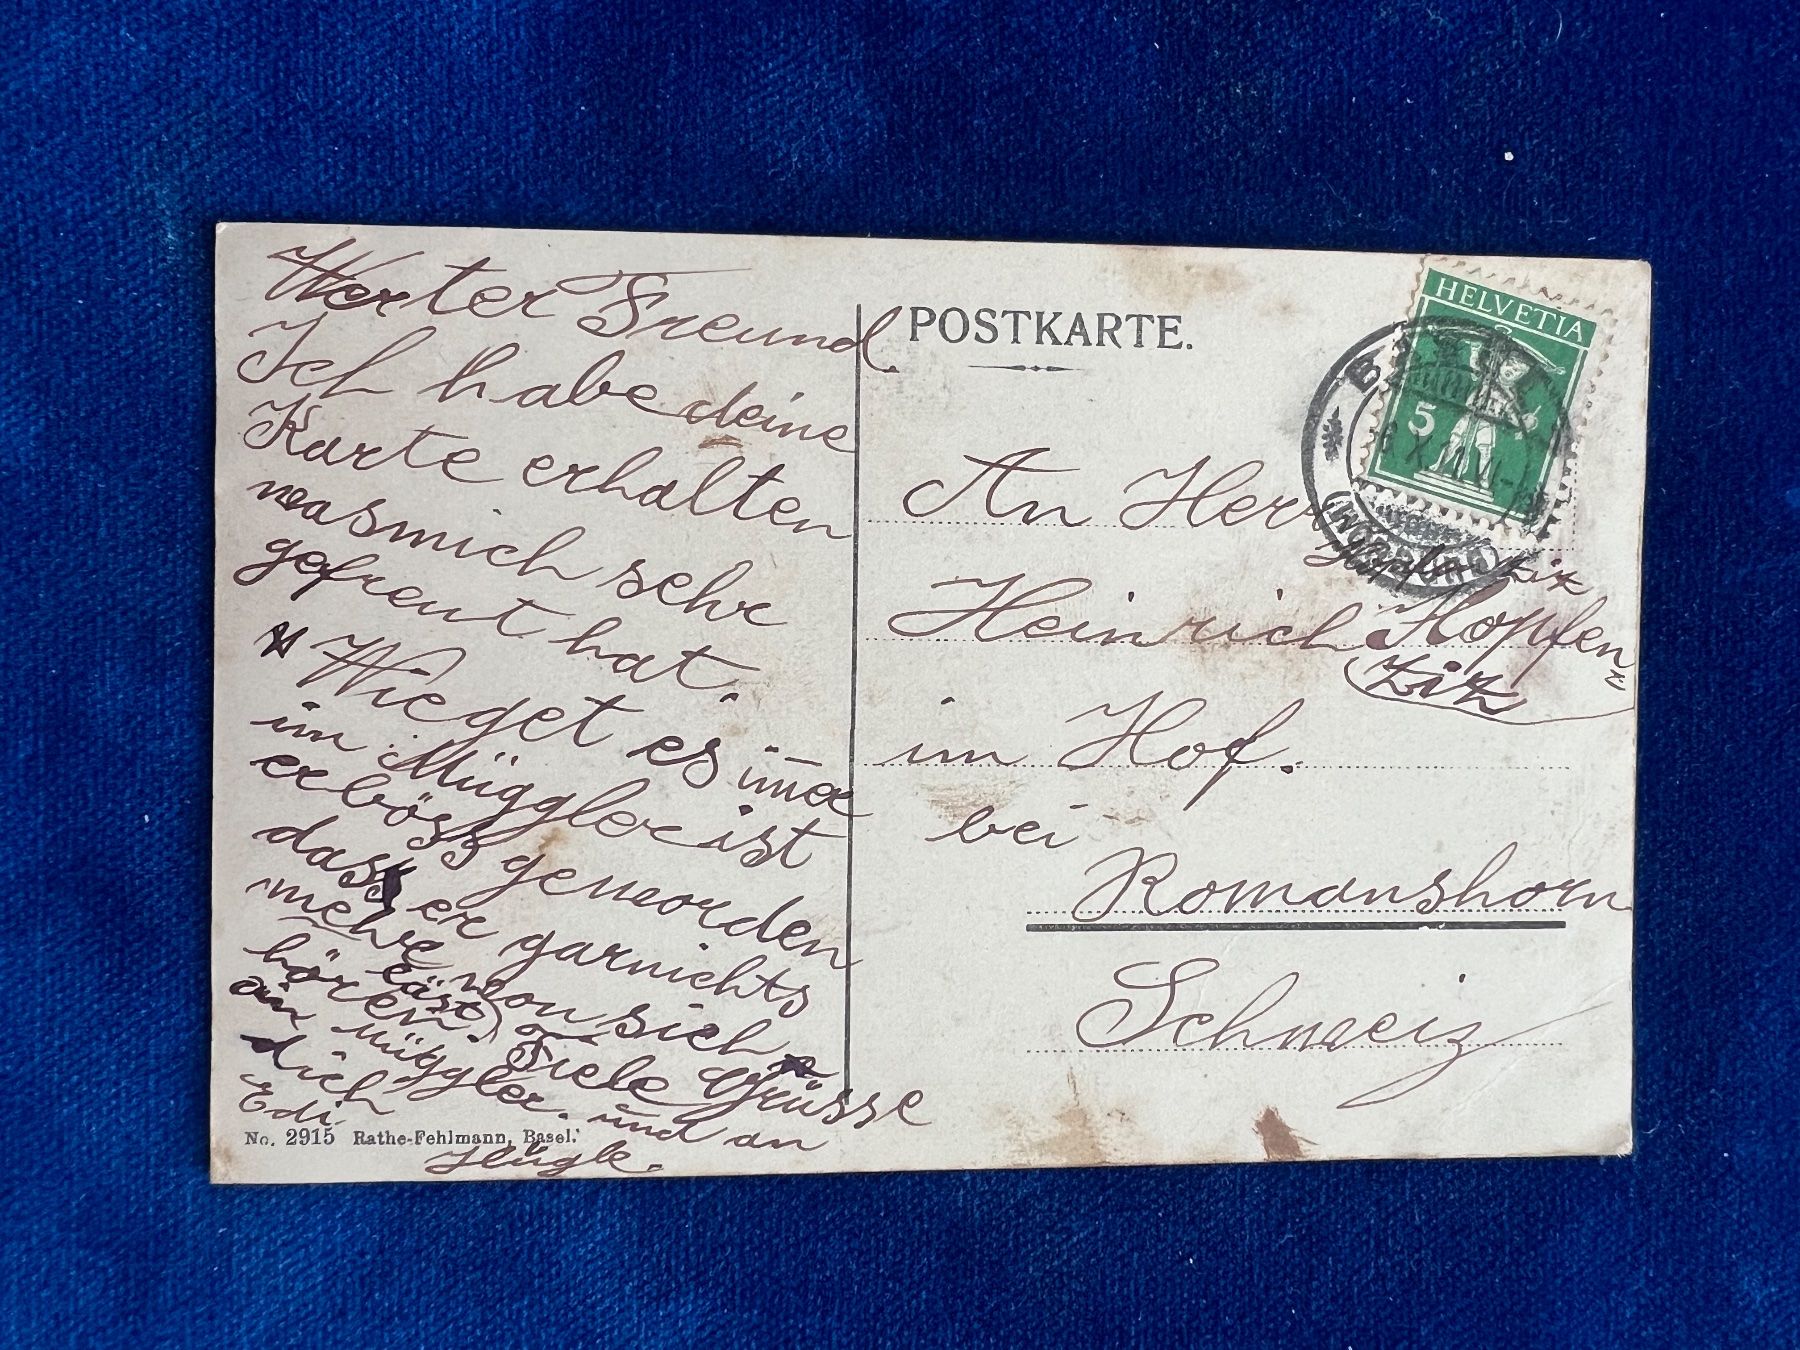 Werter Freund.
Ich habe deine
Karte erhalten
was mich sehr
gefreut hat.
Wie get es
im Müggler ist
er böss geworden
dass er garnichts
mehr von sich
hören läst
ein Müggler. und an
dich Viele Grüsse
Edi
Hügle.
No. 2915 Rathe-Fehlmann, Basel.
POSTKARTE.
HELVETIA
5
An Herr
Heinrich Hopfen
zitz
im Hof.
bei
Romanshorn
Schweiz